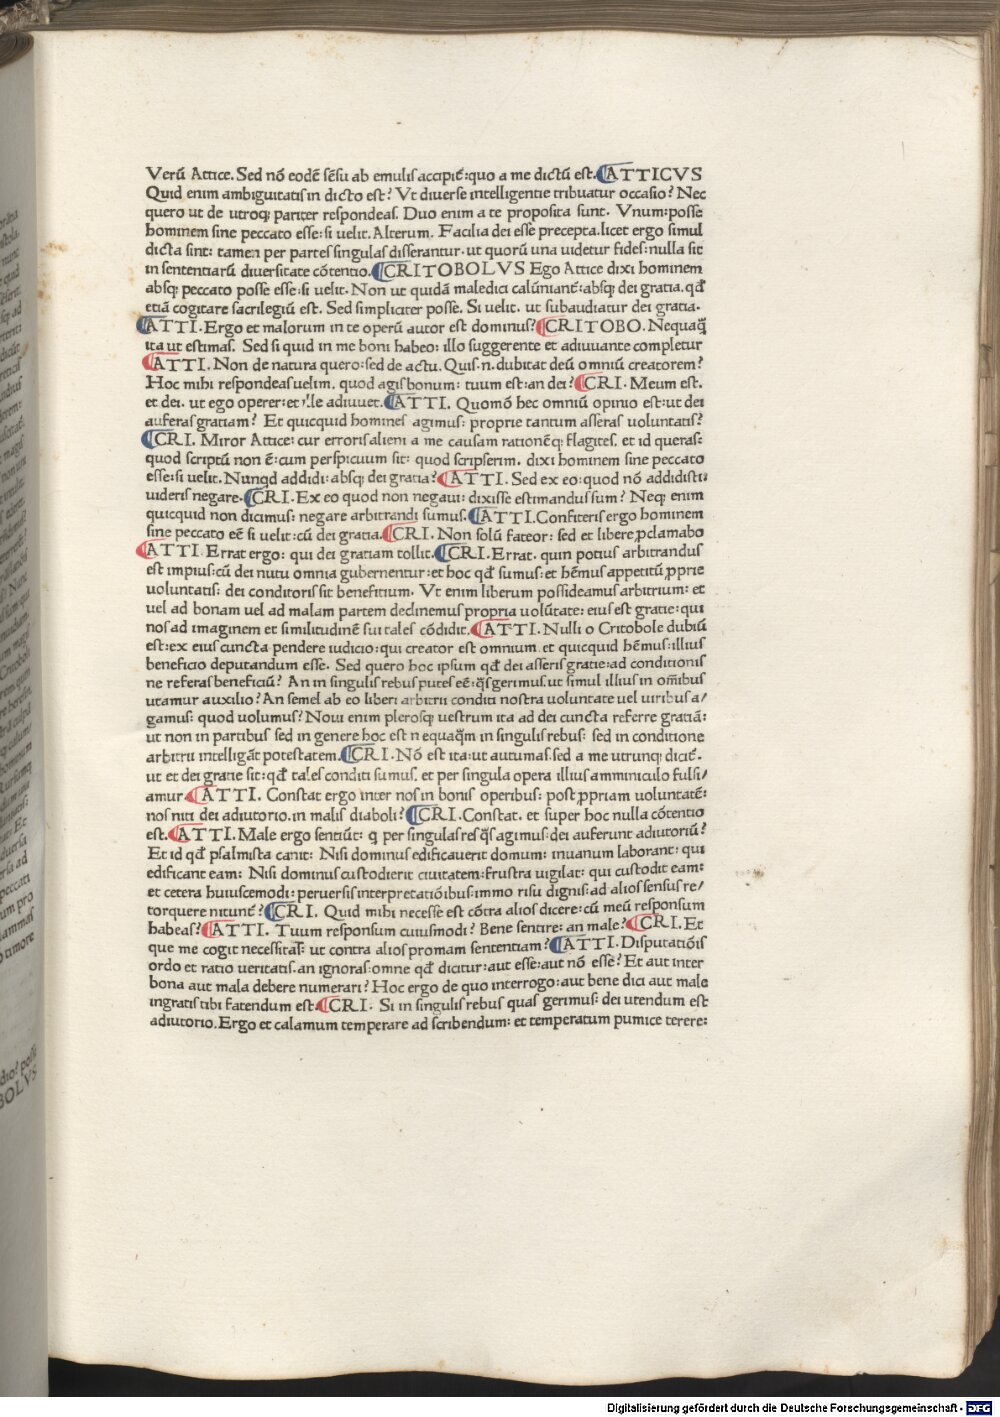 Verū Attice. Sed nō eodē sēsu ab emulis accipiē: quo a me dictū est. ATTICVS
Quid enim ambiguitatis in dicto est? Vt diverse intelligentie tribuatur occasio? Nec
quero ut de utroq; pariter respondeas. Duo enim a te proposita sunt. Vnum: posse
hominem sine peccato esse: si uelit. Alterum. Facilia dei esse precepta. licet ergo simul
dicta sint: tamen per partes singulas disserantur. ut quorū una uidetur fides: nulla sit
in sententiarū diuersitate cōtentio. CRITOBOLVS Ego Attice dixi hominem
absq; peccato posse esse: si uelit. Non ut quidā maledici calūniant̄: absq; dei gratia. qd̄
etiā cogitare sacrilegiū est. Sed simpliciter posse. Si uelit. ut subaudiatur dei gratia.
ATTI. Ergo et malorum in te operū autor est dominus? CRITOBO. Nequaq̄
ita ut estimas. Sed si quid in me boni habeo: illo suggerente et adiuuante completur
ATTI. Non de natura quero: sed de actu. Quis .n. dubitat deū omniū creatorem?
Hoc mihi respondeas uelim. quod agis bonum: tuum est: an dei? CRI. Meum est.
et dei. ut ego operer: et ille adiuuet. ATTI. Quomō hec omniū opinio est: ut dei
auferas gratiam? Et quicquid homines agimus: proprie tantum asseras uoluntatis?
CRI. Miror Attice: cur erroris alieni a me causam rationēq; flagites. et id queras:
quod scriptū non ē: cum perspicuum sit: quod scripserim. dixi hominem sine peccato
esse: si uelit. Nunqd addidi: absq; dei gratia? ATTI. Sed ex eo: quod nō addidisti:
uideris negare. CRI. Ex eo quod non negaui: dixisse estimandus sum? Neq; enim
quicquid non dicimus: negare arbitrandi sumus. ATTI. Confiteris ergo hominem
sine peccato eē si uelit: cū dei gratia. CRI. Non solū fateor: sed et libere ꝓclamabo
ATTI. Errat ergo: qui dei gratiam tollit. CRI. Errat. quin potius arbitrandus
est impius: cū dei nutu omnia gubernentur: et hoc qd̄ sumus: et hēmus appetitū ꝓprie
uoluntatis: dei conditoris sit benefitium. Vt enim liberum possideamus arbitrium: et
uel ad bonam uel ad malam partem declinemus propria uolūtate: eius est gratie: qui
nos ad imaginem et similitudinē sui tales cōdidit. ATTI. Nulli o Critobole dubiū
est: ex eius cuncta pendere iudicio: qui creator est omnium. et quicquid hēmus: illius
beneficio deputandum esse. Sed quero hoc ipsum qd̄ dei asseris gratie: ad conditionis
ne referas beneficiū? An in singulis rebus putes eē: q̄s gerimus. ut simul illius in om̄ibus
utamur auxilio? An semel ab eo liberi arbitrii conditi nostra uoluntate uel uiribus a/
gamus: quod uolumus? Noui enim plerosq; uestrum ita ad dei cuncta referre gratiā:
ut non in partibus sed in genere hoc est nequaq̄m in singulis rebus: sed in conditione
arbitrii intelligāt potestatem. CRI. Nō est ita: ut autumas. sed a me utrunq; dicit̄.
ut et dei gratie sit: qd̄ tales conditi sumus. et per singula opera illius amminiculo fulsi/
amur. ATTI. Constat ergo inter nos in bonis operibus: post ꝓpriam uoluntatē:
nos niti dei adiutorio. in malis diaboli? CRI. Constat. et super hoc nulla cōtentio
est. ATTI. Male ergo sentiūt: q per singulas res q̄s agimus: dei auferunt adiutoriū?
Et id qd̄ psalmista canit: Nisi dominus edificauerit domum: inuanum laborant: qui
edificant eam: Nisi dominus custodierit ciuitatem: frustra uigilat: qui custodit eam:
et cetera huiuscemodi: peruersis interpretatiōibus: immo risu dignis: ad alios sensus re/
torquere nitunt̄? CRI. Quid mihi necesse est cōtra alios dicere: cū meū responsum
habeas? ATTI. Tuum responsum cuiusmodi? Bene sentire: an male? CRI. Et
que me cogit necessitas: ut contra alios promam sententiam? ATTI. Disputatiōis
ordo et ratio ueritatis. an ignoras: omne qd̄ dicitur: aut esse: aut nō esse? Et aut inter
bona aut mala debere numerari? Hoc ergo de quo interrogo: aut bene dici aut male
ingratis tibi fatendum est. CRI. Si in singulis rebus quas gerimus: dei utendum est
adiutorio. Ergo et calamum temperare ad scribendum: et temperatum pumice terere:
Digitalisierung gefördert durch die Deutsche Forschungsgemeinschaft - DFG